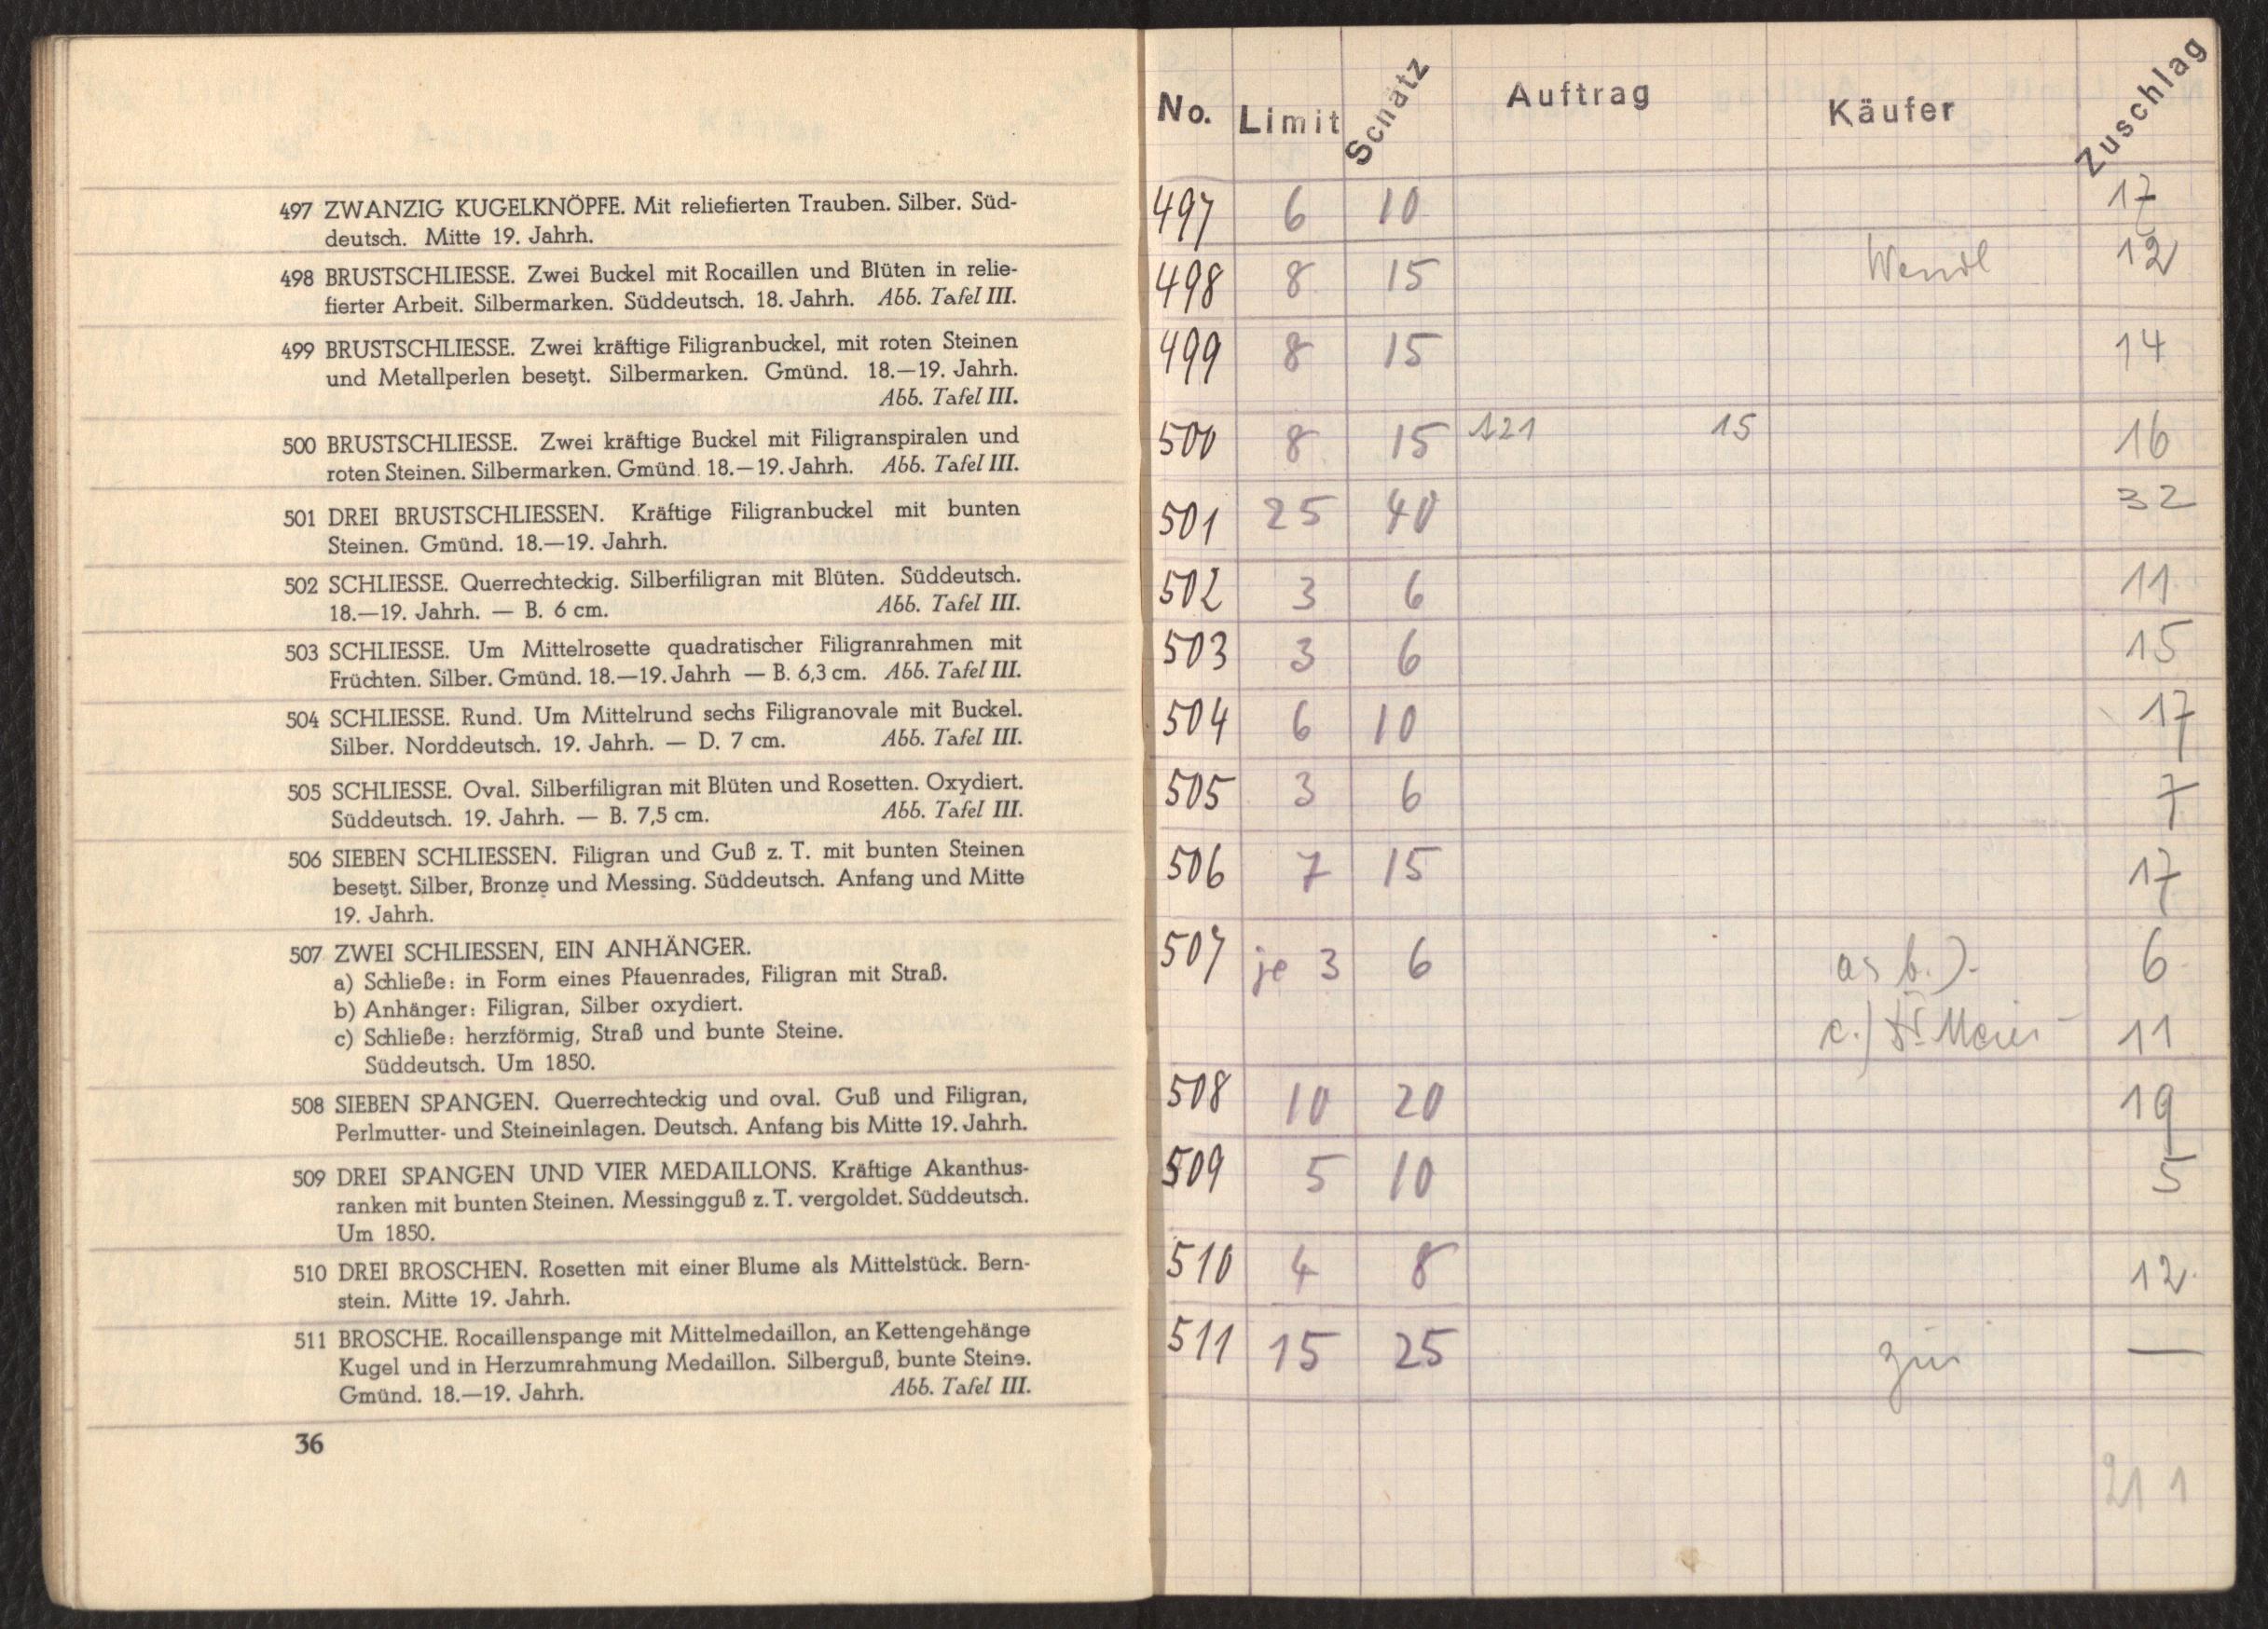 497 ZWANZIG KUGELKNÖPFE. Mit reliefierten Trauben. Silber. Süd-
deutsch. Mitte 19. Jahrh.
498 BRUSTSCHLIESSE. Zwei Buckel mit Rocaillen und Blüten in relie-
fierter Arbeit. Silbermarken. Süddeutsch. 18. Jahrh. Abb. Tafel III.
499 BRUSTSCHLIESSE. Zwei kräftige Filigranbuckel, mit roten Steinen
und Metallperlen besetzt. Silbermarken. Gmünd. 18.—19. Jahrh.
Abb. Tafel III.
500 BRUSTSCHLIESSE. Zwei kräftige Buckel mit Filigranspiralen und
roten Steinen. Silbermarken. Gmünd. 18.—19. Jahrh. Abb. Tafel III.
501 DREI BRUSTSCHLIESSEN. Kräftige Filigranbuckel mit bunten
Steinen. Gmünd. 18.—19. Jahrh.
502 SCHLIESSE. Querrechteckig. Silberfiligran mit Blüten. Süddeutsch.
18.—19. Jahrh. — B. 6 cm. Abb. Tafel III.
503 SCHLIESSE. Um Mittelrosette quadratischer Filigranrahmen mit
Früchten. Silber. Gmünd. 18.—19. Jahrh — B. 6,3 cm. Abb. Tafel III.
504 SCHLIESSE. Rund. Um Mittelrund sechs Filigranovale mit Buckel.
Silber. Norddeutsch. 19. Jahrh. — D. 7 cm. Abb. Tafel III.
505 SCHLIESSE. Oval. Silberfiligran mit Blüten und Rosetten. Oxydiert.
Süddeutsch. 19. Jahrh. — B. 7,5 cm. Abb. Tafel III.
506 SIEBEN SCHLIESSEN. Filigran und Guß z. T. mit bunten Steinen
besetzt. Silber, Bronze und Messing. Süddeutsch. Anfang und Mitte
19. Jahrh.
507 ZWEI SCHLIESSEN, EIN ANHÄNGER.
a) Schließe: in Form eines Pfauenrades, Filigran mit Straß.
b) Anhänger: Filigran, Silber oxydiert.
c) Schließe: herzförmig, Straß und bunte Steine.
Süddeutsch. Um 1850.
508 SIEBEN SPANGEN. Querrechteckig und oval. Guß und Filigran,
Perlmutter- und Steineinlagen. Deutsch. Anfang bis Mitte 19. Jahrh.
509 DREI SPANGEN UND VIER MEDAILLONS. Kräftige Akanthus-
ranken mit bunten Steinen. Messingguß z. T. vergoldet. Süddeutsch.
Um 1850.
510 DREI BROSCHEN. Rosetten mit einer Blume als Mittelstück. Bern-
stein. Mitte 19. Jahrh.
511 BROSCHE. Rocaillenspange mit Mittelmedaillon, an Kettengehänge
Kugel und in Herzumrahmung Medaillon. Silberguß, bunte Steine.
Gmünd. 18.—19. Jahrh. Abb. Tafel III.
36
No. Limit Schätz Auftrag Käufer Zuschlag
497 6 10 17
498 8 15 Wendl 12
499 8 15 14
500 8 15 121 15 16
501 25 40 32
502 3 6 11
503 3 6 15
504 6 10 17
505 3 6 7
506 7 15 17
507 je 3 6 6
c.) Meier 11
508 10 20 19
509 5 10 5
510 4 8 12
511 15 25 —
211